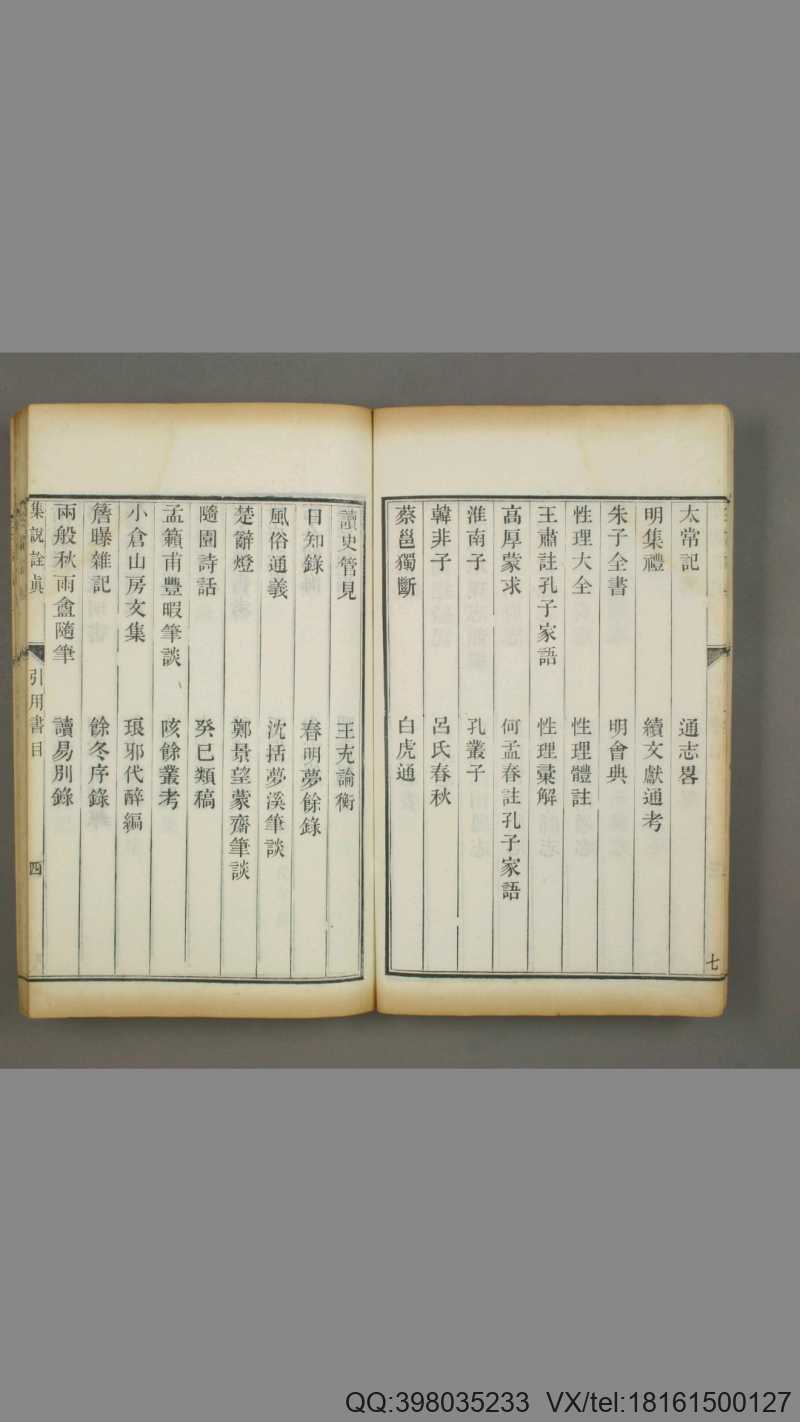 太常記
通志畧
明集禮
續文獻通考
朱子全書
明會典
性理大全
性理體註
王肅註孔子家語
性理彙解
高厚蒙求
何孟春註孔子家語
淮南子
孔叢子
韓非子
呂氏春秋
蔡邕獨斷
白虎通
七
讀史管見
王充論衡
日知錄
春明夢餘錄
風俗通義
沈括夢溪筆談
楚辭燈
鄭景望蒙齋筆談
隨園詩話
癸巳類稿
孟籟甫豐暇筆談
陔餘叢考
小倉山房文集
琅邪代醉編
簷曝雜記
餘冬序錄
兩般秋雨盦隨筆
讀易別錄
集說詮眞
引用書目
四
QQ:398035233 VX/tel:18161500127